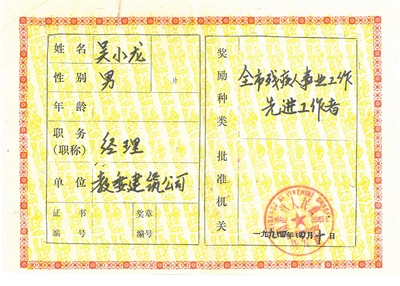 姓名 吴小龙
性别 男 片
年龄
职务
(职称) 经理
单位 教委建筑公司
证书编号 奖章编号
奖励种类 全市残疾人事业工作
先进工作者
批准机关
一九九四年四月十日